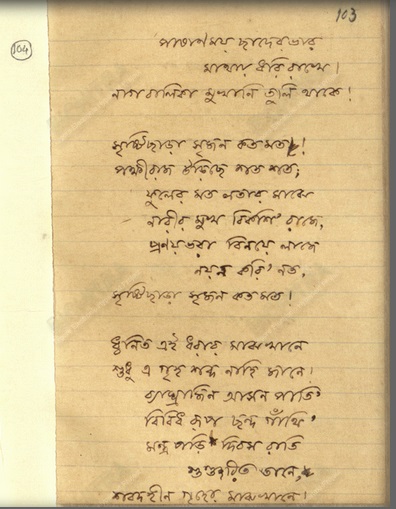 103
104
পাষাণময় ছাদের ভার
মাথায় ধরি রাখে।
নাগবালিকা মুখানি তুলি থাকে!
সৃষ্টিছাড়া সৃজন কতমত!
পক্ষীরাজ উড়িছে শত শত;
ফুলের মত লতার মাঝে
নারীর মুখ বিকশি' রাজে,
প্রণয়ভরা বিনয়ে লাজে
নয়ন করি' নত,
সৃষ্টিছাড়া সৃজন কতমত!
ধ্বনিত এই ধরার মাঝখানে
শুধু এ গৃহ শব্দ নাহি জানে।
ব্যাঘ্রাজিন আসন পাতি'
বিবিধ রূপ ছন্দ গাঁথি'
মন্ত্র পড়ি' দিবস রাতি
গুঞ্জরিত তানে,
শবদহীন গৃহের মাঝখানে!